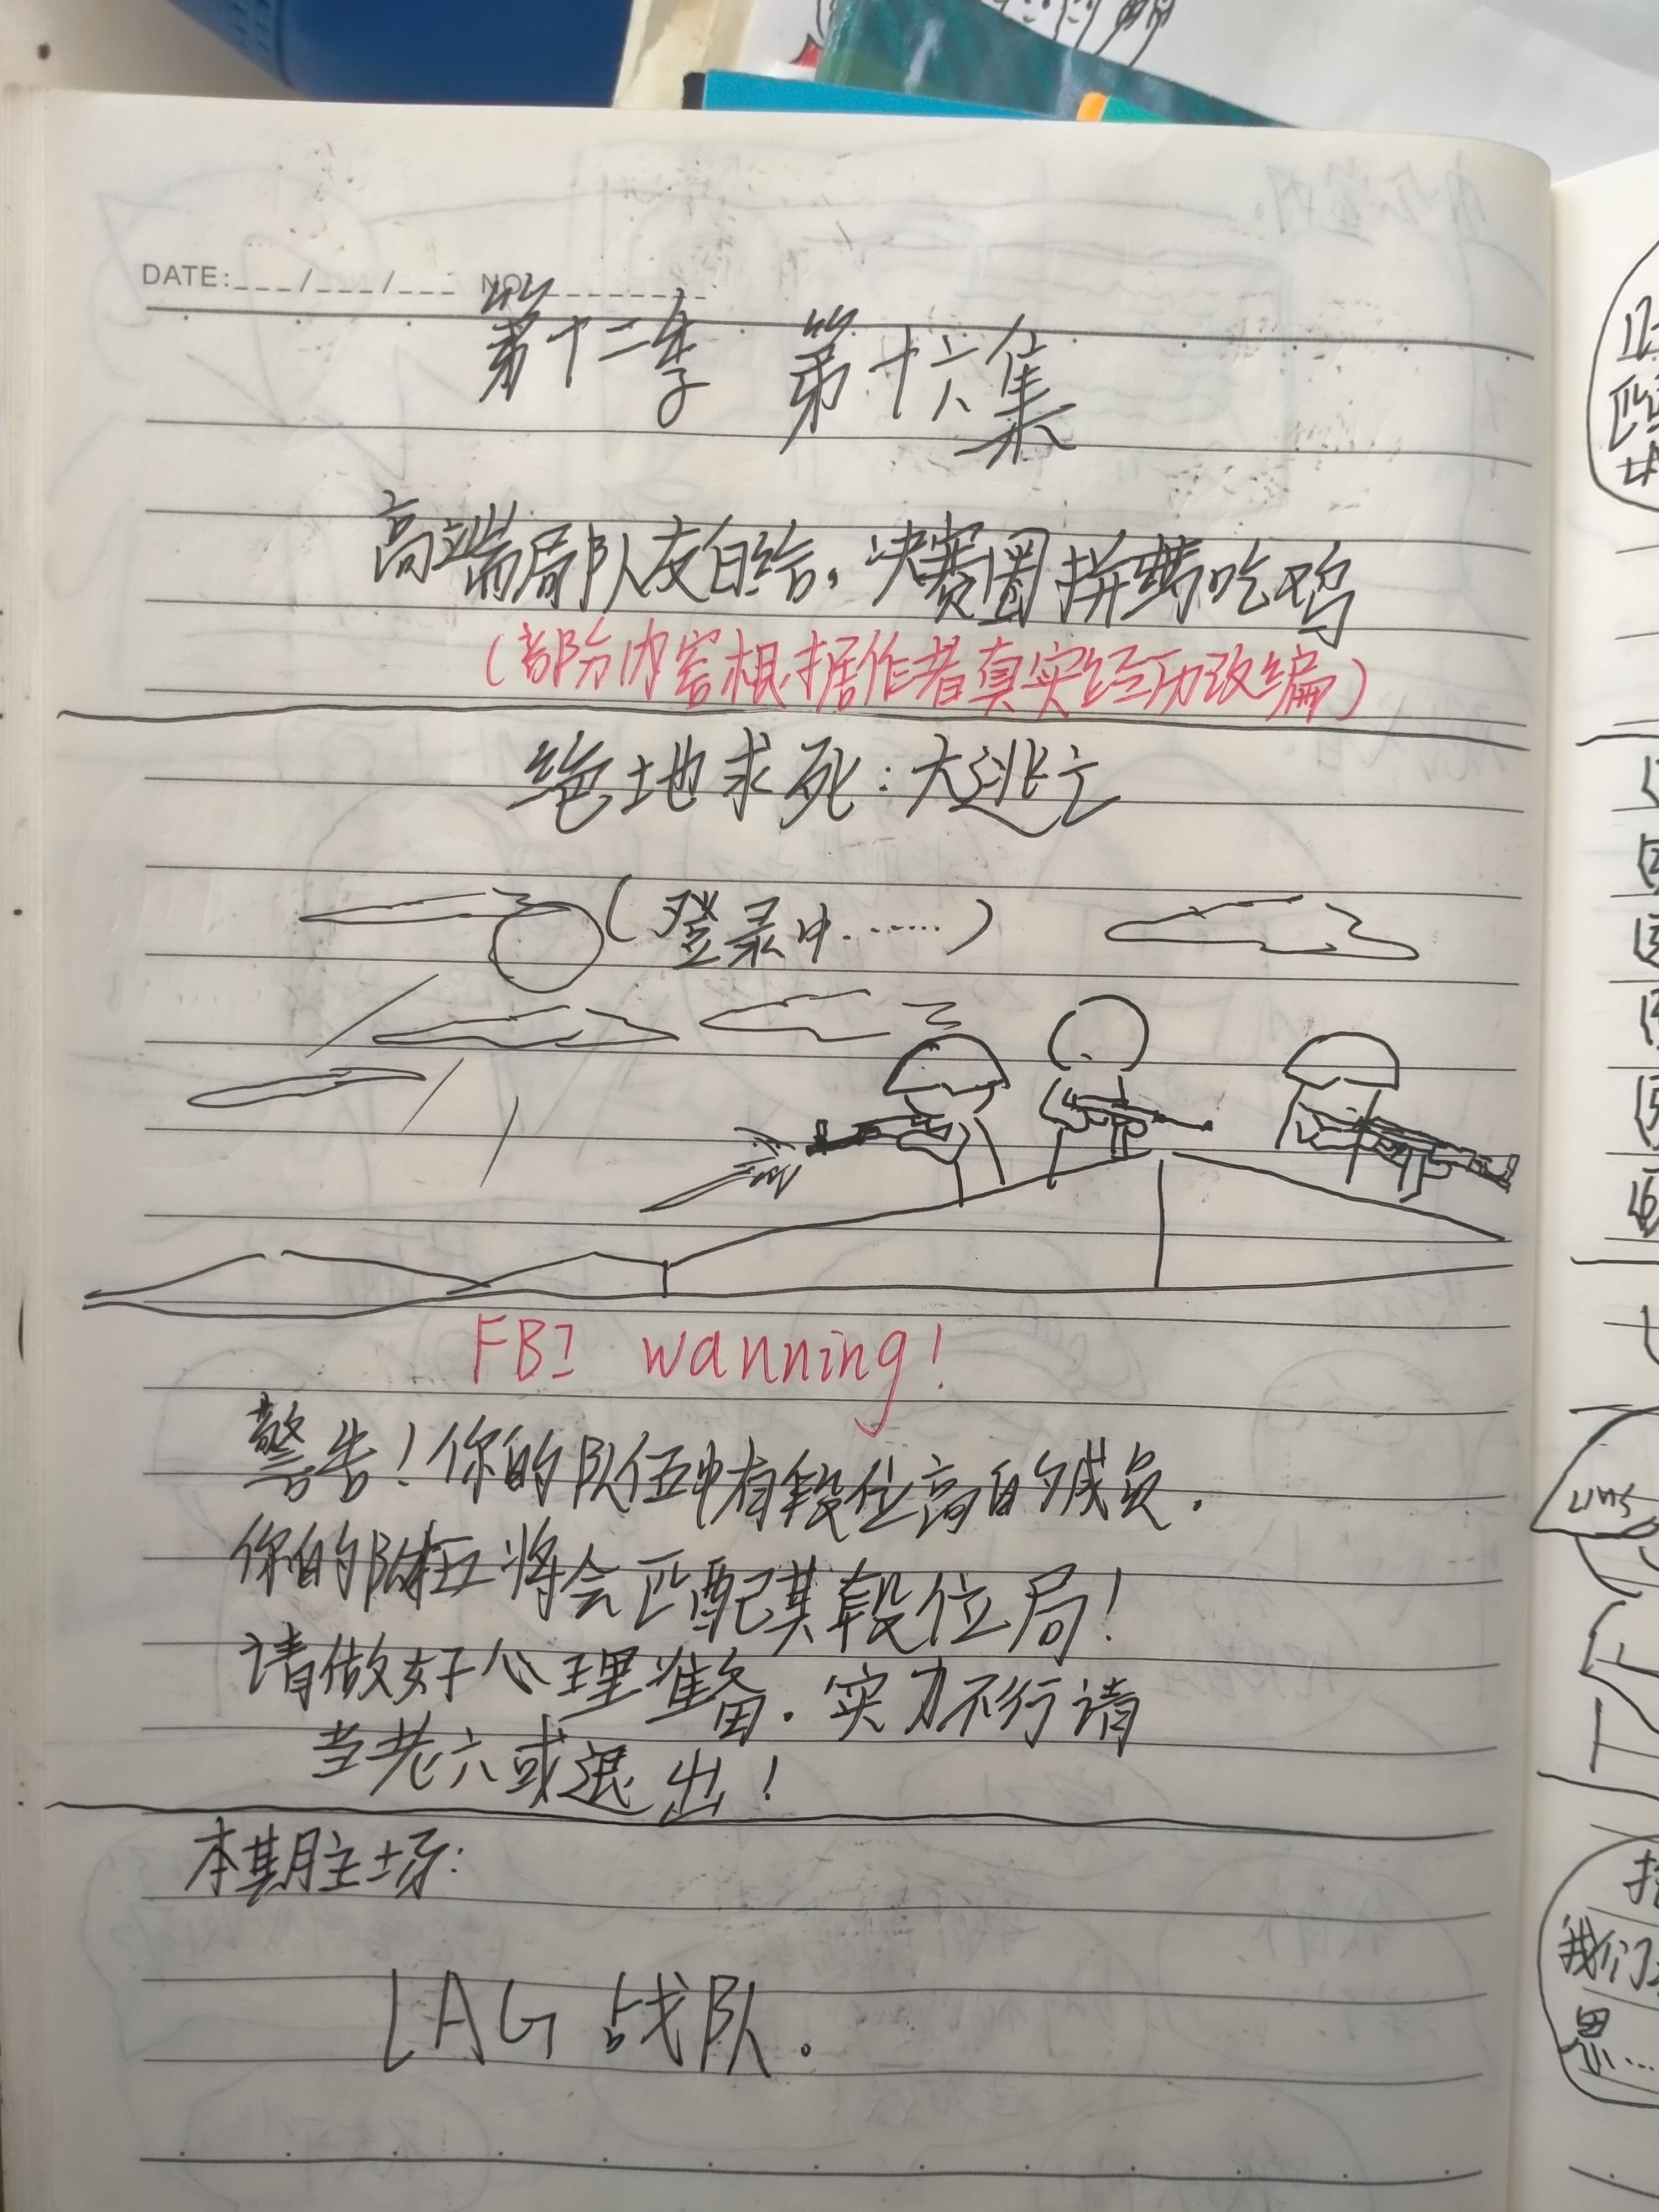 DATE:___/___/___ NO
第十二季 第十六集
高端局队友自给。决赛圈拼势吃鸡
(部分内容根据作者真实经历改编)
绝地求死:大逃亡
(登录中……)
FBI wanning!
警告!你的队伍中有段位高的成员.
你的队伍将会匹配其段位局!
请做好心理准备.实力不行请
当老六或退出!
本期主场:
LAG 战队.
我们
思…